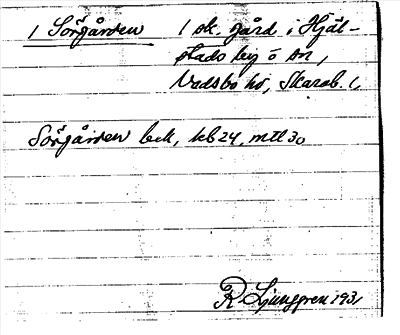 1 Sörgården 1 sk. gård i Hjäl-
stads by o An,
Vadsbo hd, Skarab. l,
Sörgården bek, kb 24, mtl 30
R Ljunggren 1931